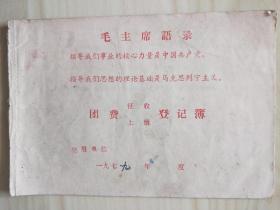 毛主席語录
指导我们事业的核心力量是中国共产党。
指导我们思想的理论基础是马克思列宁主义。
团费 征收 上缴 登记簿
使用单位
一九七九年度